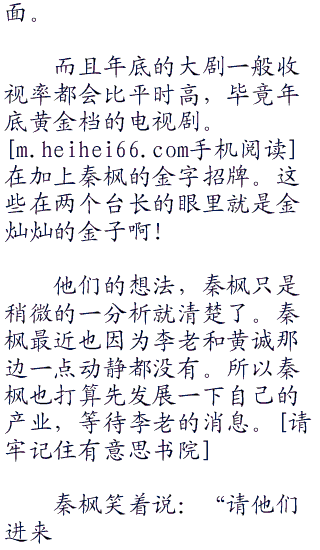 面。
而且年底的大剧一般收
视率都会比平时高，毕竟年
底黄金档的电视剧。
[m.heihei66.com手机阅读]
在加上秦枫的金字招牌。这
些在两个台长的眼里就是金
灿灿的金子啊！
他们的想法，秦枫只是
稍微的一分析就清楚了。秦
枫最近也因为李老和黄诚那
边一点动静都没有。所以秦
枫也打算先发展一下自己的
产业，等待李老的消息。[请
牢记住有意思书院]
秦枫笑着说：“请他们
进来